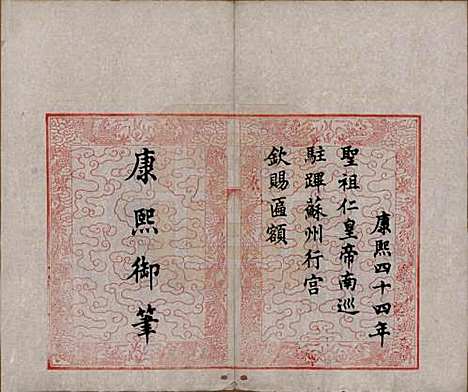 康熙四十四年
聖祖仁皇帝南巡
駐蹕蘇州行宫
欽賜匾額
康熙御筆